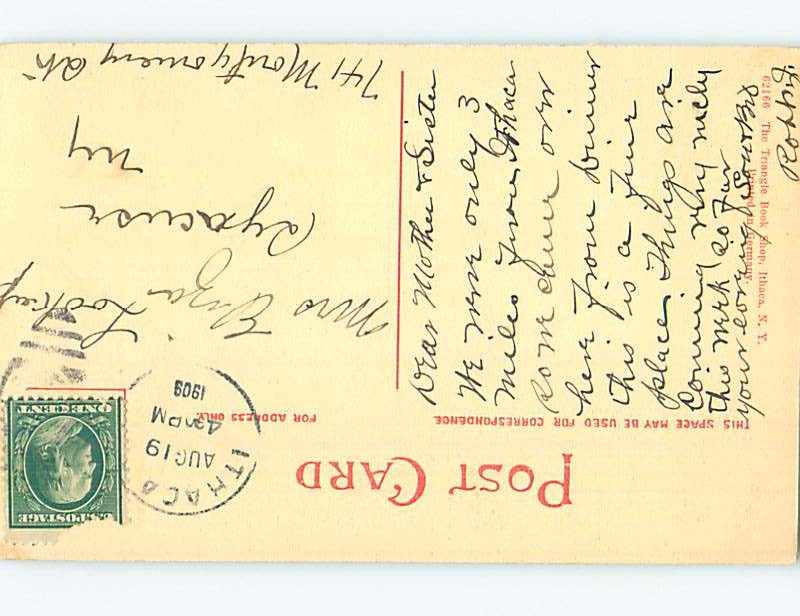 POST CARD
THIS SPACE MAY BE USED FOR CORRESPONDENCE
FOR ADDRESS ONLY.
U.S. POSTAGE
ONE CENT
ITHACA
AUG 19
PM
1909
Dear Mother & Sister
We were only 3
miles from Ithaca
so we came over
here from Dinner
this is a fine
place. Things are
coming very nicely
this week so far
your loving Son & Bro
Robbie.
Mrs Eliza
Syracuse
NY
741 Montgomery St.
62166 The Triangle Book Shop, Ithaca, N. Y.
Printed in Germany.